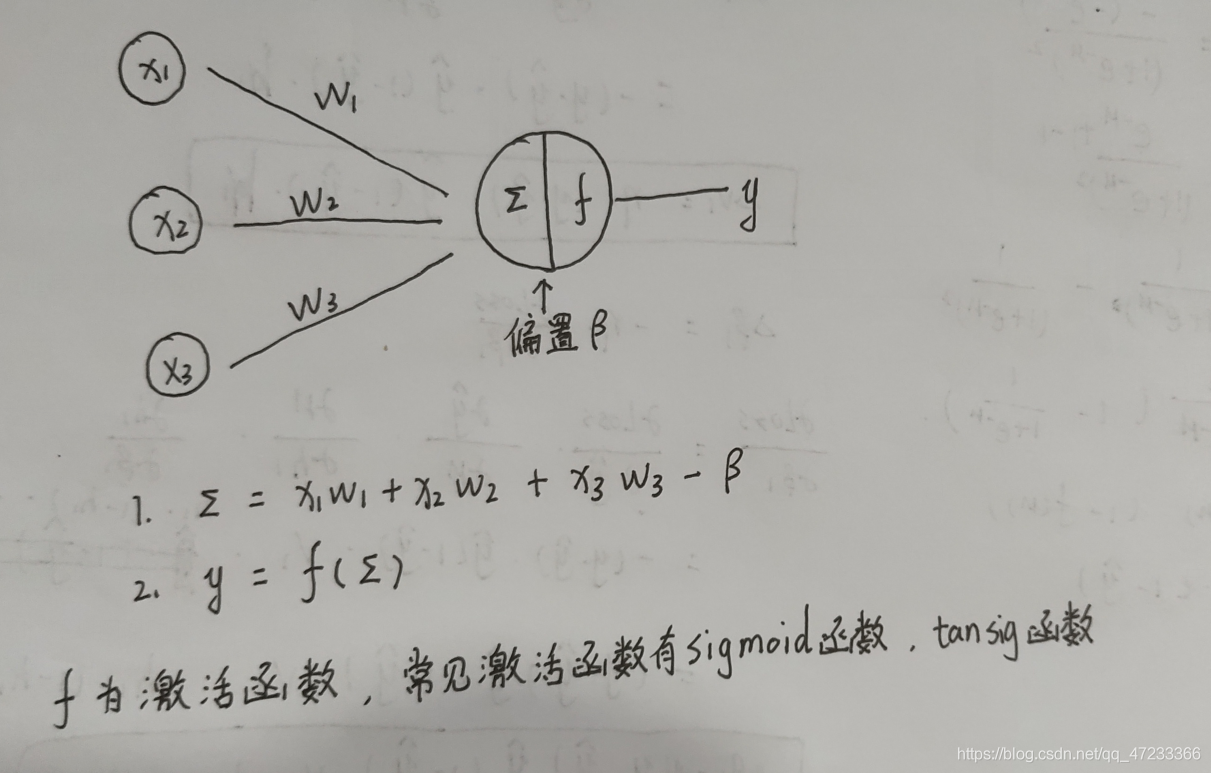 x₁
W₁
x₂
W₂
Σ f
y
W₃
x₃
偏置 β
1. Σ = x₁w₁ + x₂w₂ + x₃w₃ - β
2. y = f(Σ)
f 为激活函数，常见激活函数有sigmoid函数，tansig函数
https://blog.csdn.net/qq_47233366